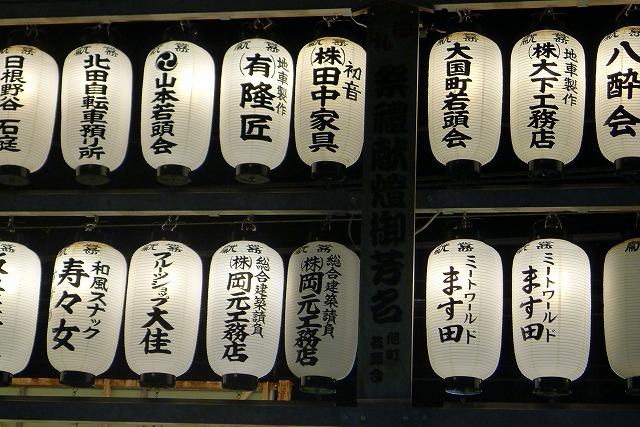 献 燈
日根野谷 石莚
献 燈
北田自転車預り所
献 燈
山本若頭会
献 燈
地車製作
(有)隆匠
献 燈
初音
(株)田中家具
献 燈
大国町若頭会
献 燈
地車製作
(株)大下工務店
献 燈
八酔会
祭禮献燈御芳名
旭町
若頭会
献 燈
和風スナック
寿々女
献 燈
フルーツショップ
大佳
献 燈
総合建築請負
(株)岡元工務店
献 燈
総合建築請負
(株)岡元工務店
献 燈
ミートワールド
ます田
献 燈
ミートワールド
ます田